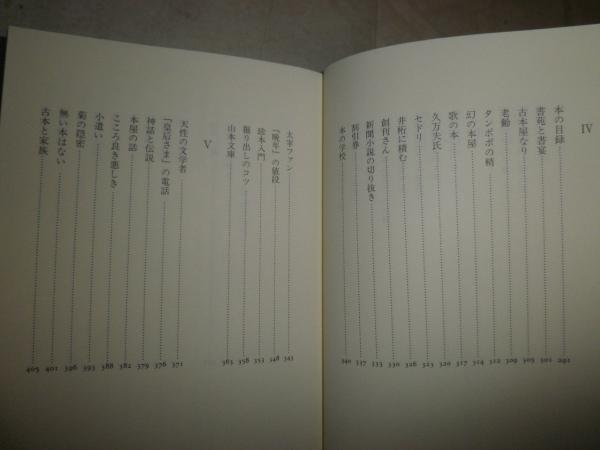 IV
本の目録 291
書苑と書宴 301
古本屋なり 305
老齢 309
タンポポの精 312
幻の本屋 314
歌の本 317
久万夫氏 320
セドリ 323
井桁に積む 326
創刊さん 330
新聞小説の切り抜き 333
割引券 337
本の学校 340
太宰ファン 343
「晩年」の値段 348
珍本入門 353
掘り出しのコツ 358
山本文庫 363
V
天性の文学者 371
「皇后さま」の電話 376
神話と伝説 379
本屋の話 382
こころ良き悪しき 388
小遣い 393
菊の隠密 396
無い本はない 401
古本と家族 405